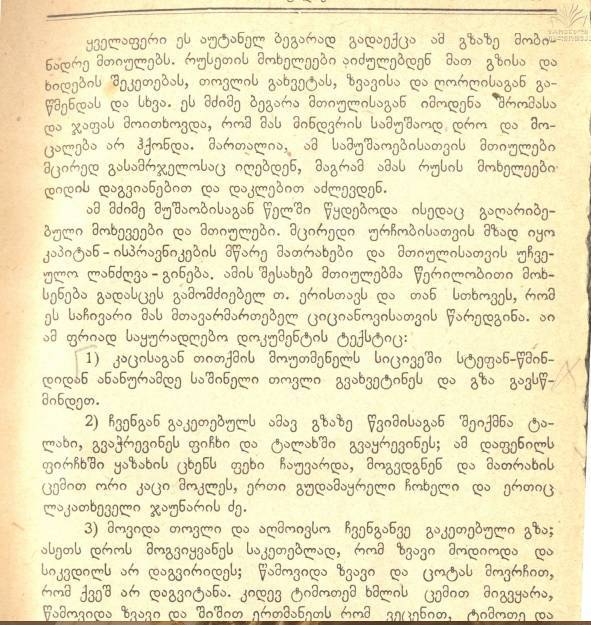 ყველაფერი ეს აუტანელ ბეგარად გადაექცა ამ გზაზე მობი-
ნადრე მთიულებს. რუსეთის მოხელეები აიძულებდენ მათ გზისა და
ხიდების შეკეთებას, თოვლის გახვეტას, ზვავისა და ღორღისაგან გა-
წმენდას და სხვა. ეს მძიმე ბეგარა მთიულისაგან იმოდენა შრომასა
და ჯაფას მოითხოვდა, რომ მას მინდვრის სამუშაოდ დრო და მო-
ცალება არ ჰქონდა. მართალია, ამ სამუშაოებისათვის მთიულები
მცირედ გასამრჯელოსაც იღებდენ, მაგრამ ამას რუსის მოხელეები
დიდის დაგვიანებით და დაკლებით აძლევდენ.
ამ მძიმე მუშაობისაგან წელში წყდებოდა ისედაც გაღარიბე-
ბული მოხევეები და მთიულები. მცირედი ურჩობისათვის მზად იყო
კაპიტან-ისპრავნიკების მწარე მათრახები და მთიულისათვის უჩვე-
ულო ლანძღვა-გინება. ამის შესახებ მთიულებმა წერილობითი მოხ-
სენება გადასცეს გამომძიებელ თ. ერისთავს და თან სთხოვეს, რომ
ეს საჩივარი მას მთავარმართებელ ციციანოვისათვის წარედგინა. აი
ამ ფრიად საყურადღებო დოკუმენტის ტექსტიც:
1) კაცისაგან თითქმის მოუთმენელს სიცივეში სტეფან-წმინ-
დიდან ანანურამდე საშინელი თოვლი გვახვეტინეს და გზა გავსწ-
მინდეთ.
2) ჩვენგან გაკეთებულს ამავ გზაზე წვიმისაგან შეიქმნა ტა-
ლახი, გვაჭრევინეს ფიჩხი და ტალახში გვაყრევინეს; ამ დაფენილს
ფირჩხში ყაზახის ცხენს ფეხი ჩაუვარდა, მოგვდგნენ და მათრახის
ცემით ორი კაცი მოკლეს, ერთი გუდამაყრელი ჩოხელი და ერთიც
ლაკათხეველი ჯაუნარის ძე.
3) მოვიდა თოვლი და აღმოივსო ჩვენგანვე გაკეთებული გზა;
ასეთს დროს მოგვიყვანეს საკეთებლად, რომ ზვავი მოდიოდა და
სიკვდილს არ დაგვირიდეს; წამოვიდა ზვავი და ცოტას მოვრჩით,
რომ ქვეშ არ დაგვიტანა. კიდევ ტიმოთემ ხმლის ცემით მიგვყარა,
წამოვიდა ზვავი და შიშით ერთმანეთს რომ ვეცენით, ტიმოთე და